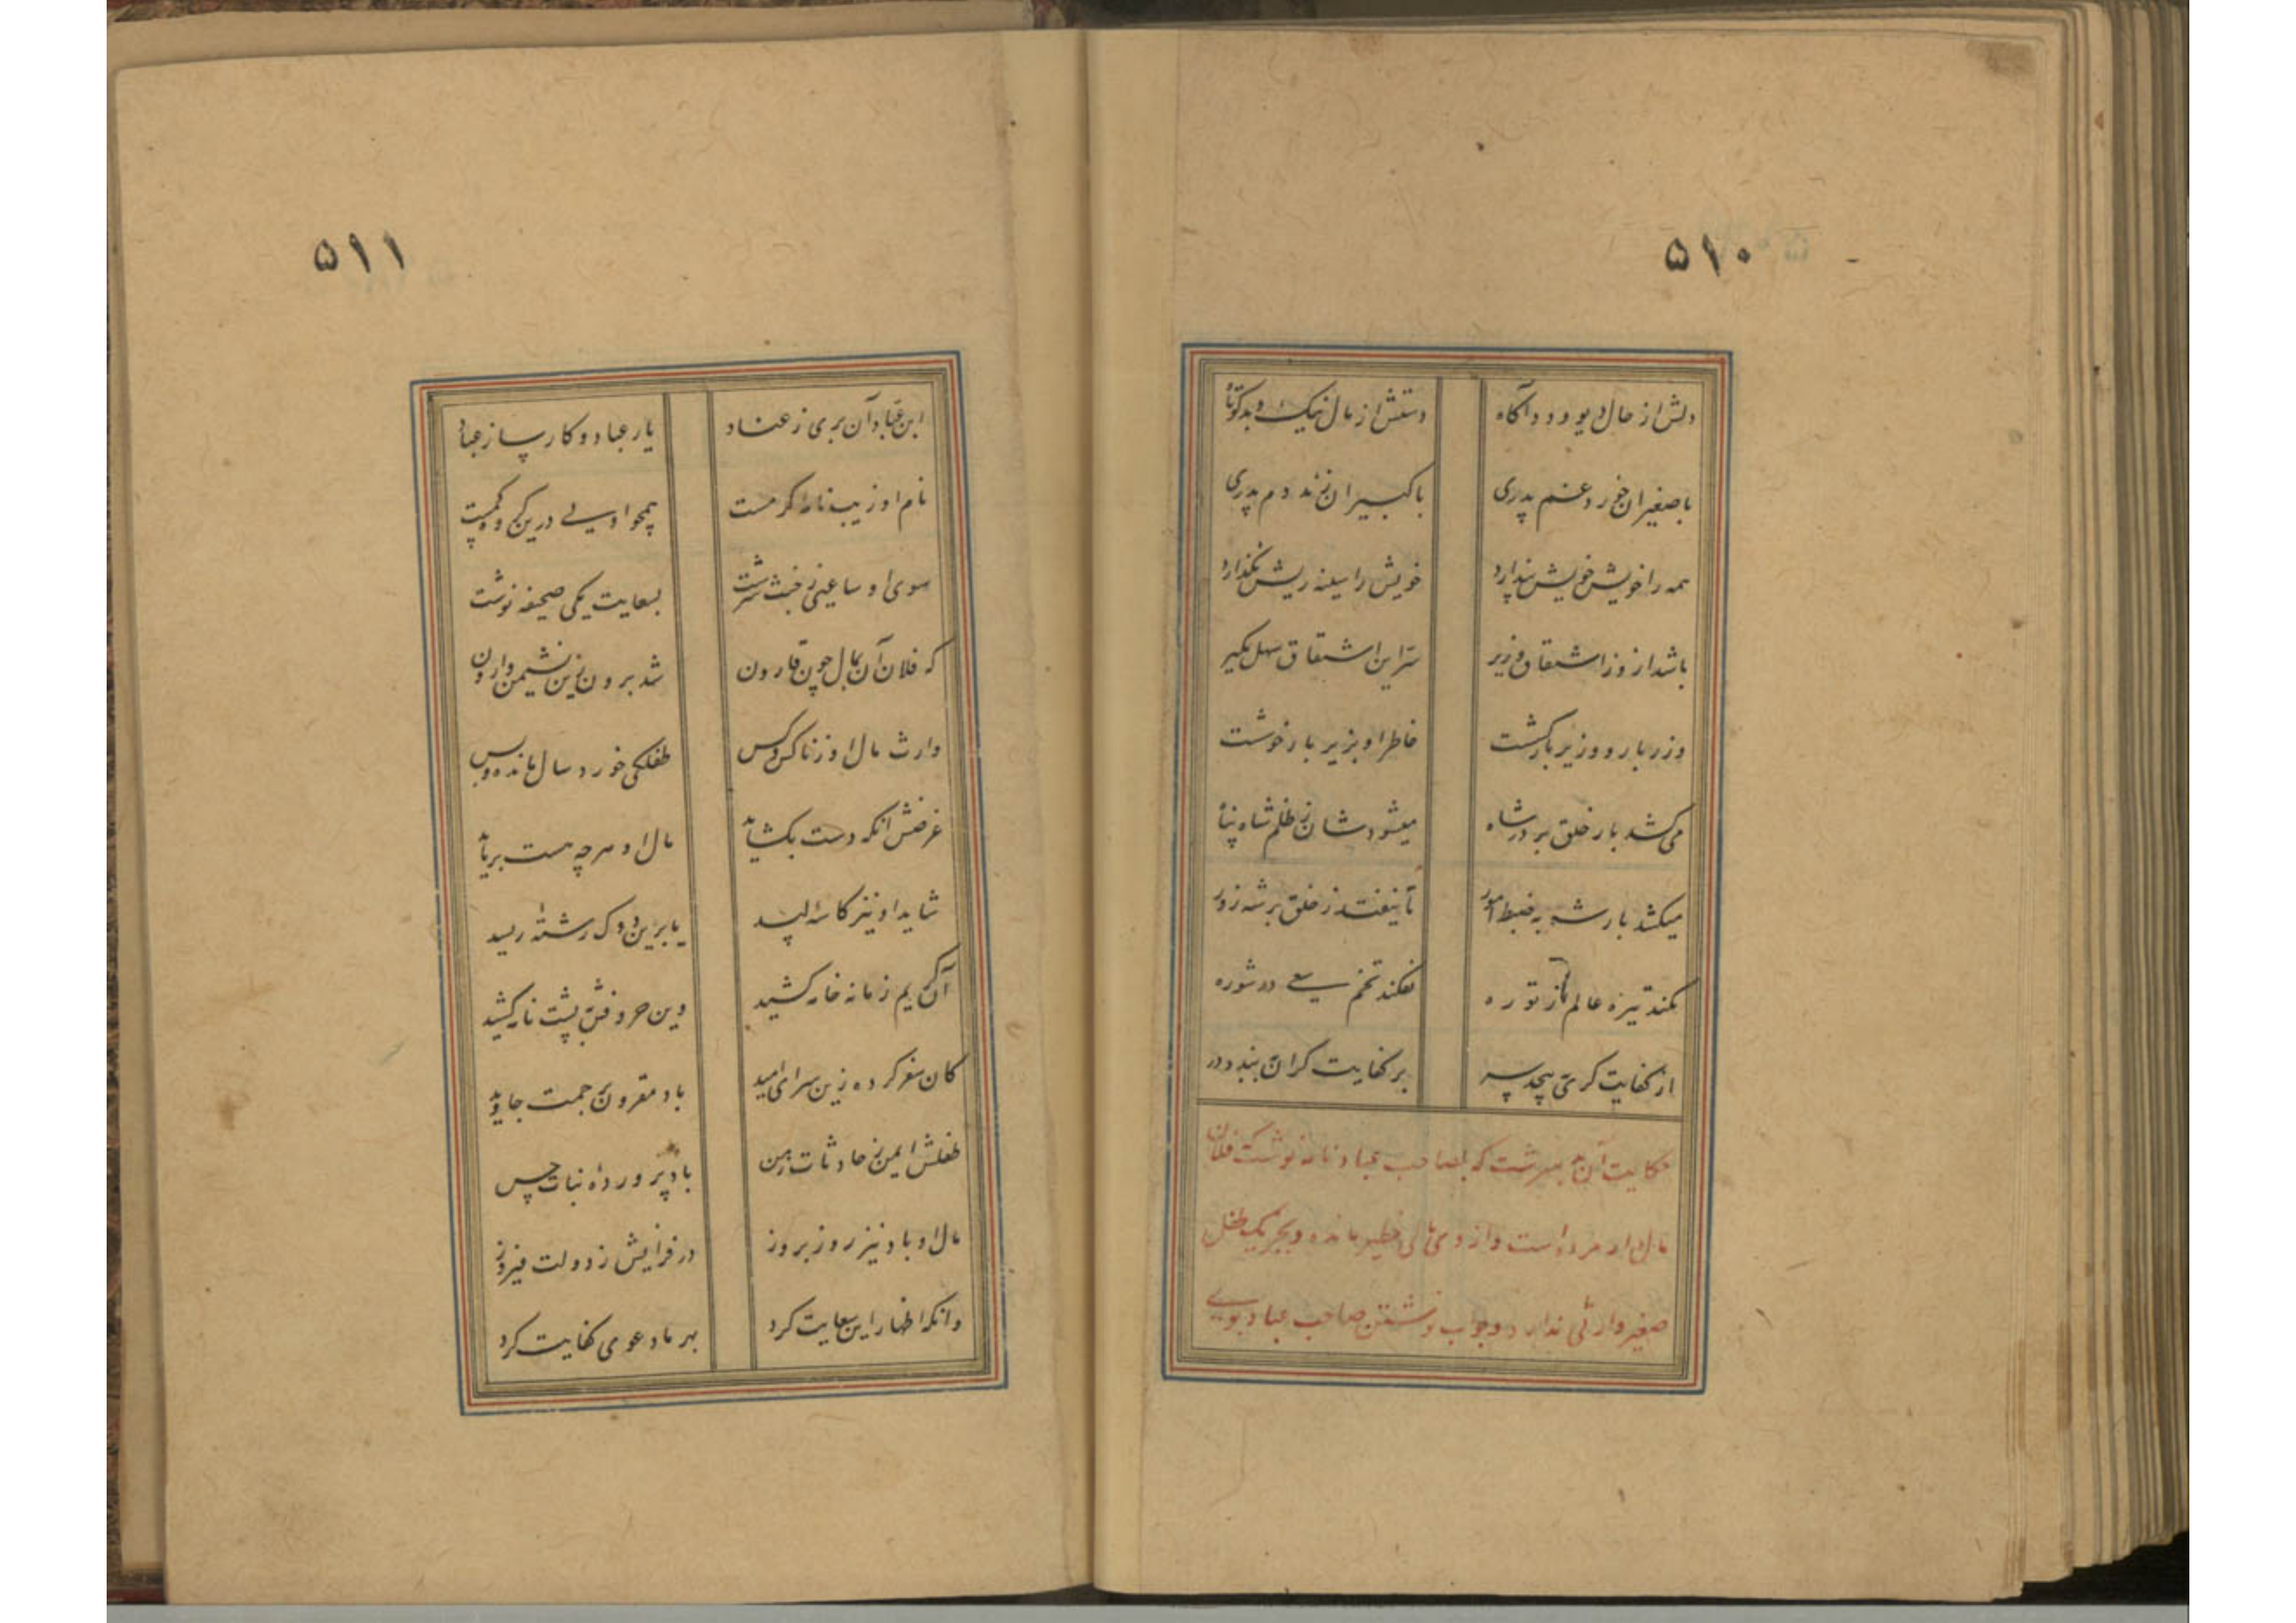 ۵۱۰
دلش از حال دیو و دد آگاه دستش از مال نیک و بد کوتاه
با صغیران خورد غم پدری با کبیران زند دم پدری
همه را خویش خویش پندارد خویش را سینه ریش نگذارد
باشد از وزر اشتقاق وزیر سر این اشتقاق سهل مگیر
وزر بار و وزیر بارکشست خاطر او بزیر بار خوشست
می کشد بار خلق بر در شاه میشودشان ز ظلم شاه پناه
میکشد بار شه به ضبط امور تا نیفتد ز خلق بر شه زور
نکند تیره عالم از توره نفکند تخم سعی در شوره
از کفایت گری بپیچد سر بر کفایت گران ببندد در
حکایت آن بد سرشت که بصاحب عباد نامه نوشت که فلان
مالدار مرده است و از وی مالی خطیر مانده و بجز یک طفل
صغیر وارثی ندارد و جواب نوشتن صاحب عباد بوی
۵۱۱
ابن عباد آن بری ز عناد یار عباد و کارساز عباد
نام او زیب نامه کرمست همچو اویی درین کرم و کمست
سوی او ساعیی ز خبث سرشت بسعایت یکی صحیفه نوشت
که فلان آن بمال چون قارون شد برون زین نشیمن وارون
وارث مال او ز ناکس و کس طفلکی خورد سال مانده و بس
غرضش آنکه دست بگشاید مال او هر چه هست برباید
شاید او نیز کاسه لیسد یا برین دوک رشته ریسد
آن کریم زمانه خامه کشید وین حروفش به پشت نامه کشید
کان سفر کرده زین سرای امید باد مقرون برحمت جاوید
طفلش ایمن ز حادثات زمن باد پرورده نبات حسن
مال او باد نیز روز بروز در فزایش ز دولت فیروز
وانکه اظهار این سعایت کرد بهر ما دعوی کفایت کرد